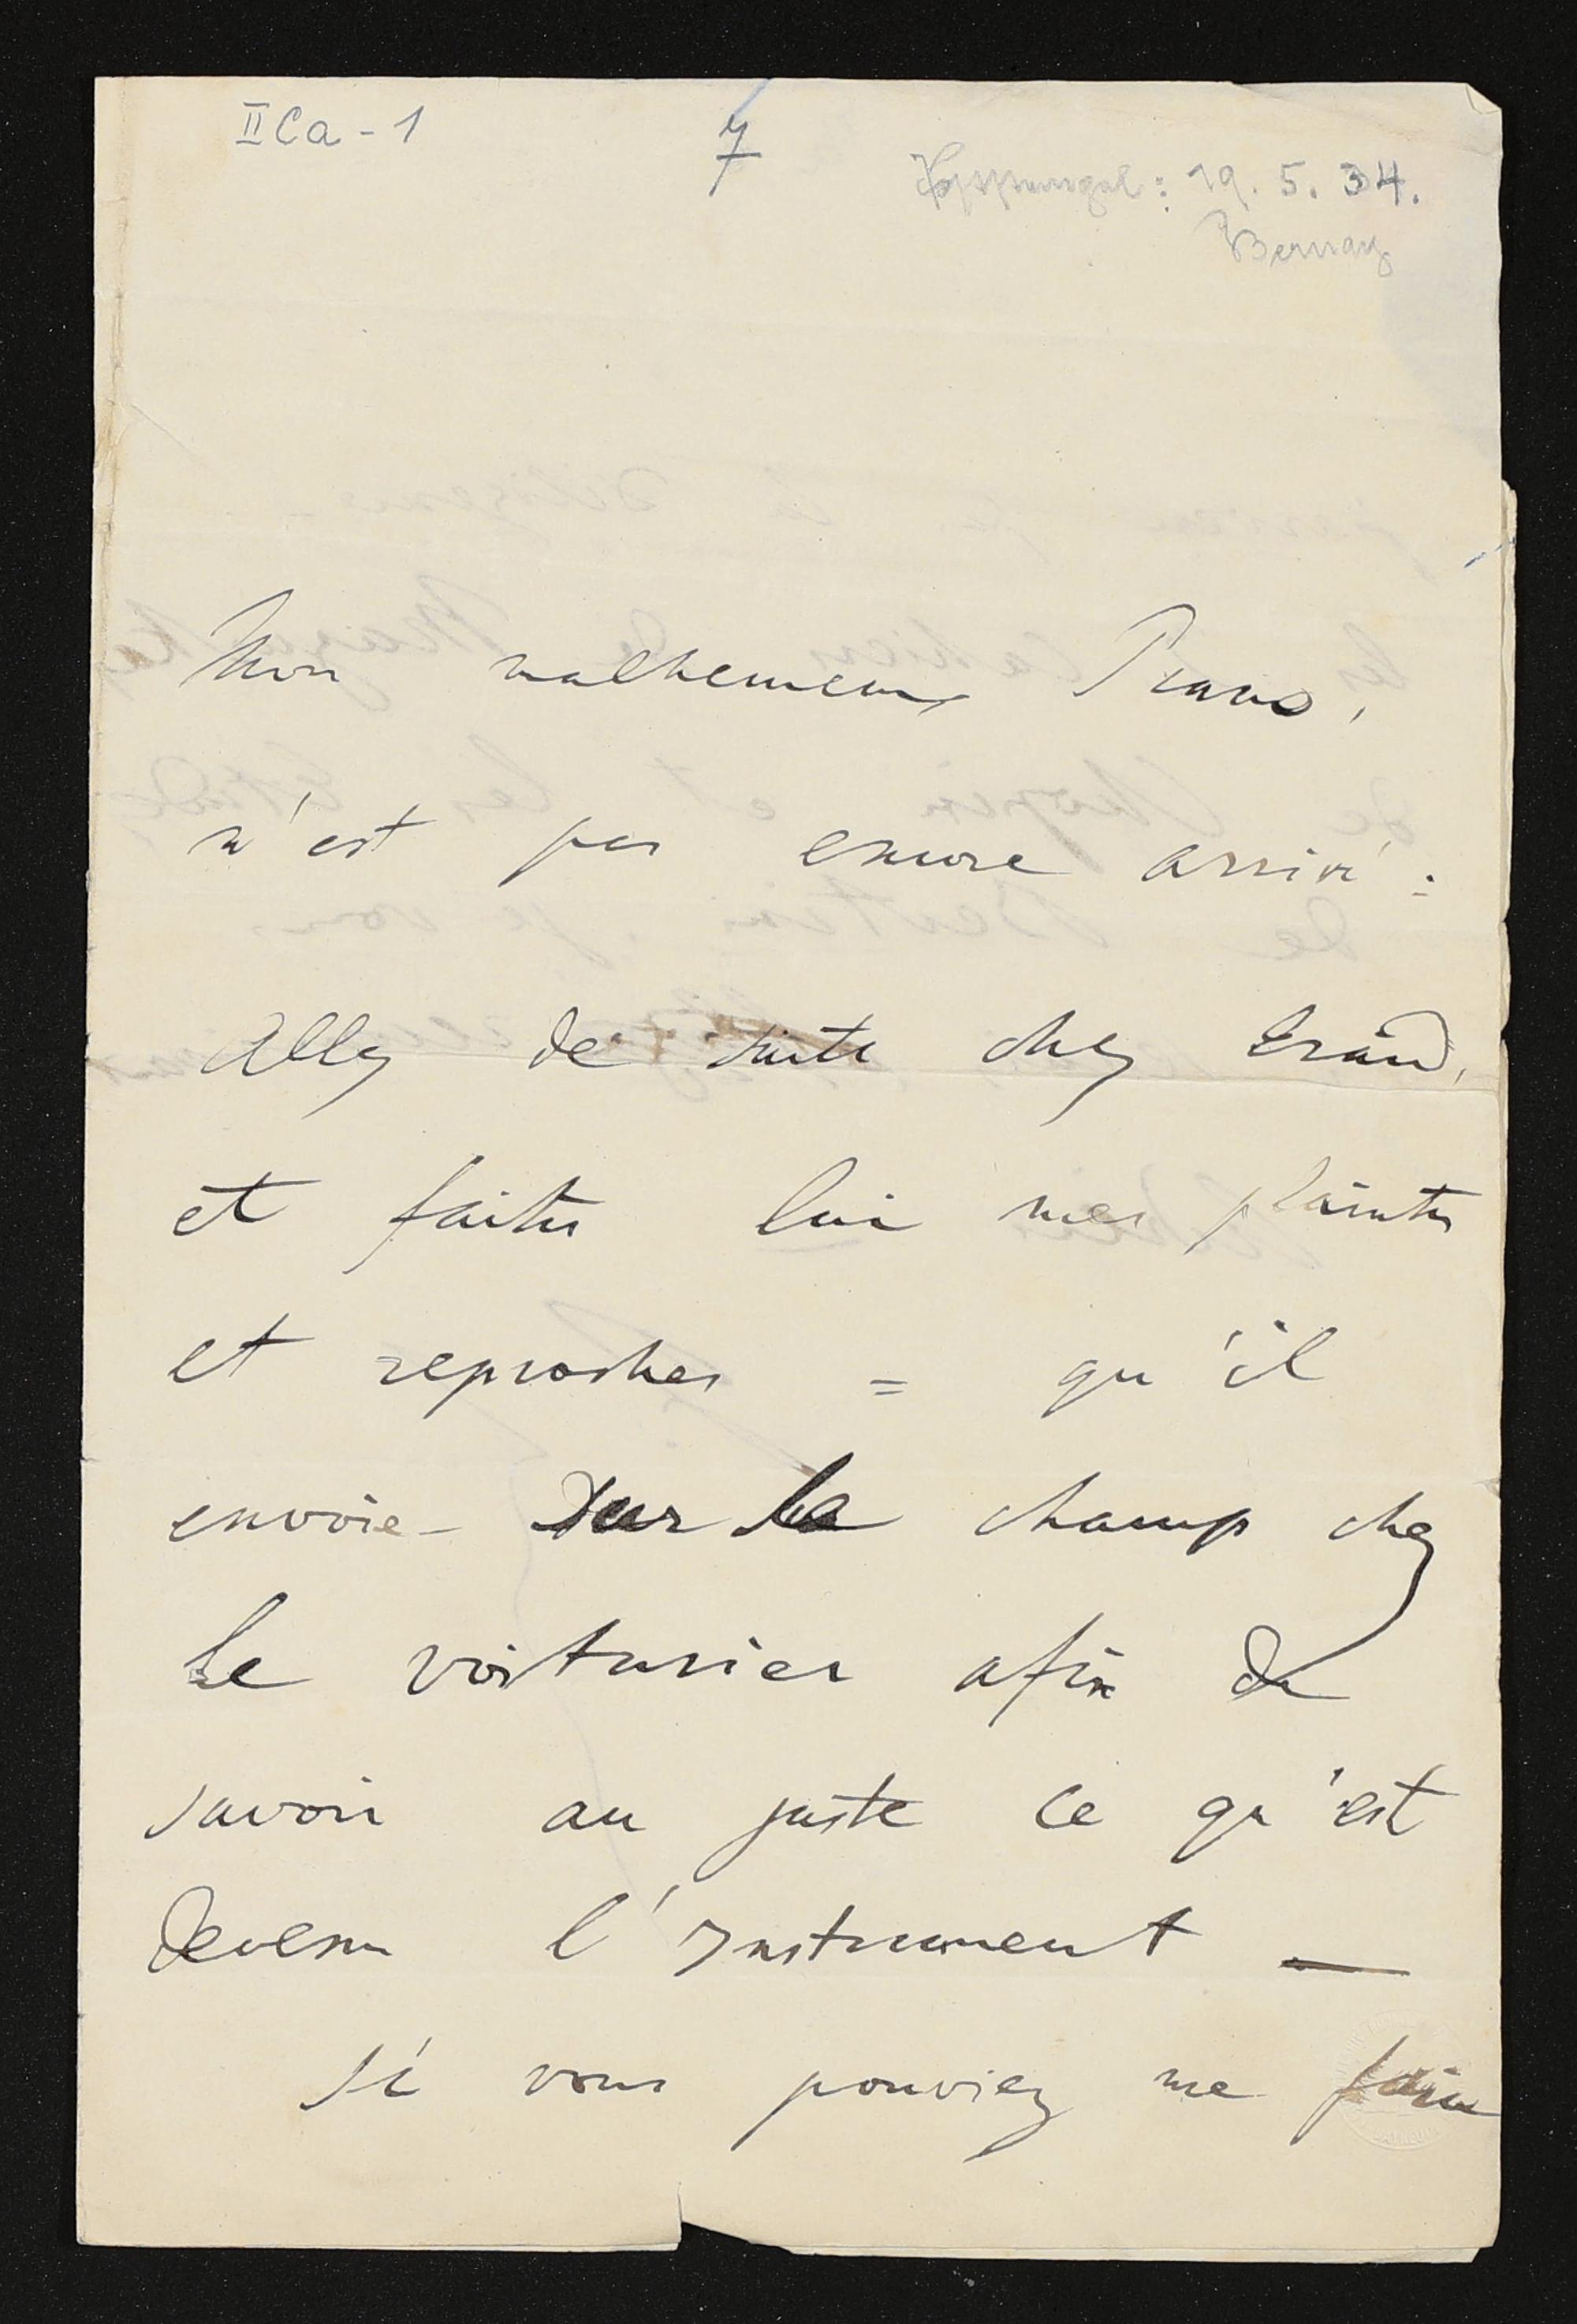 IICa - 1
7
Poststempel: 19. 5. 34.
Bernay
Mon malheureux Piano,
n'est pas encore arrivé.
Allez de suite chez Erard,
et faites lui mes plaintes
et reproches = qu'il
envoie - sur le champ chez
le voiturier afin de
savoir au juste ce qu'est
devenu l'Instrument —
Si vous pouviez me faire